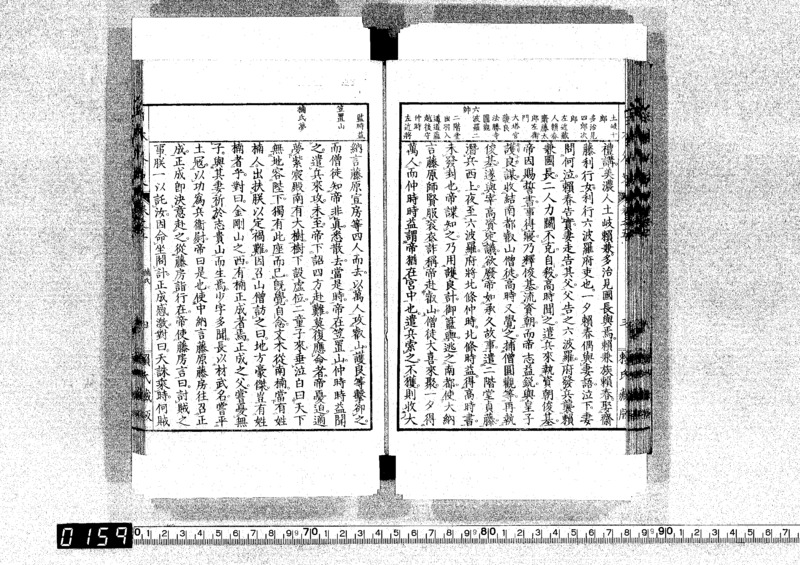 禮講美濃人土岐賴兼多治見國長與焉賴兼族賴春娶齋
藤利行女利行六波羅府吏也一夕賴春偶與妻語泣下妻
問何泣賴春告實妻走告其父父告之六波羅府發兵襲賴
兼國長二人力鬭不克自殺高時聞之遣兵來執資朝俊基
帝因賜誓書事得寢乃釋俊基流資朝而帝志益銳與皇子
護良謀收結南都叡山僧徒高時又覺之捕僧圓觀等再執
俊基遂與宰高資定議欲廢帝如承久故事遣二階堂貞藤
潛兵西上夜至六波羅府將北條仲時北條時益得高時書
未發封也帝諜知之乃用護良計御籃輿逃之南都使大納
言藤原師賢服袞衣詐稱帝赴叡山僧徒大喜來聚一夕得
萬人而仲時時益謂帝猶在宮中也遣兵索之不獲則收大
土岐十
郎
多治見
四郎次
郎
左近藏
人賴春
齋藤太
郎左衛
門
大塔宮
護良
法勝寺
圓觀
六波羅二
帥
二階堂
出羽入
道道蘊
越後守
仲時
左近將
納言藤原宣房等四人而去以萬人攻叡山護良等擊卻之
而僧徒知帝非真悉散去當是時帝在笠置山仲時時益聞
之遣兵來攻未至帝下詔四方赴難莫復應命者帝憂迫適
夢紫宸殿南有大樹樹下設虛位二童子來垂泣白曰天下
無地容陛下獨有此座而已既覺自念文木從南楠當有姓
楠人出扶朕以定禍難因召山僧訪之曰地方豪傑豈有姓
楠者乎對曰金剛山之西有楠正成者焉正成之父嘗憂無
子與其妻祈於志貴山而生焉少字多聞長以材武名嘗平
土寇以功爲兵衛尉帝曰是也使中納言藤原藤房往召正
成正成即決意赴之從藤房詣行在帝使藤房言曰討賊之
事朕一以託汝因命坐問計正成感激對曰天誅乘時何賊
監時益
笠置山
楠氏夢
賴氏藏版
0159